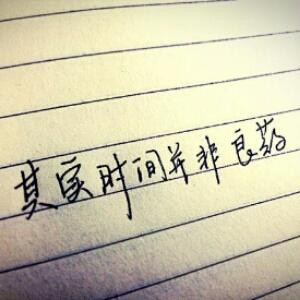 其实时间并非良药